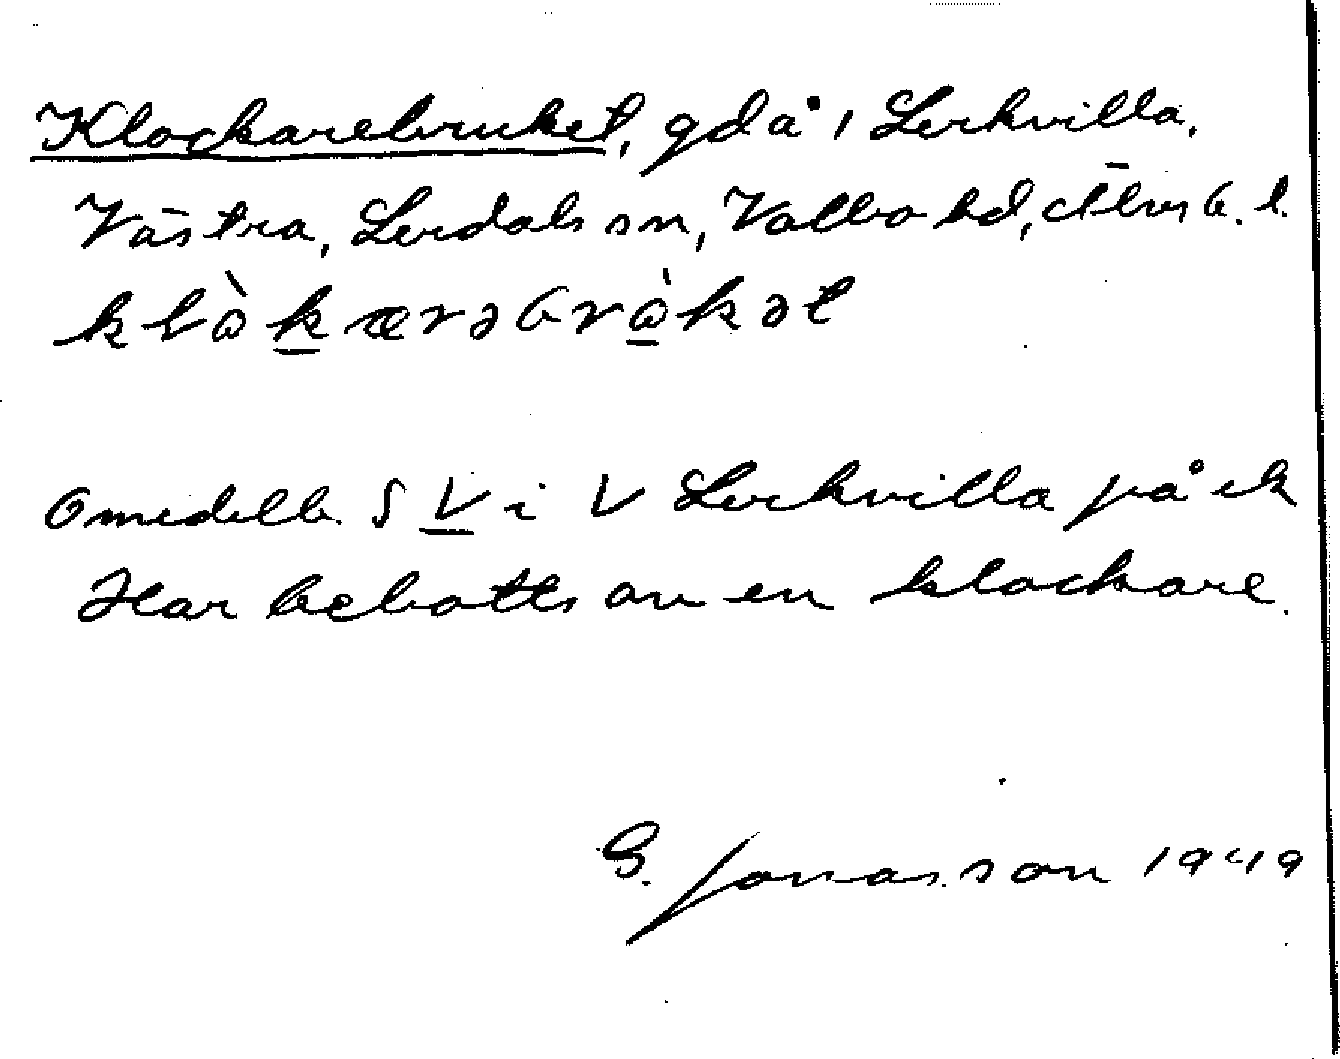 Klockarebruket, gd å 1 Lerkvilla,
Västra, Lerdals sn, Valbo hd, Älvsb. l.
klòkærəbròkət
Omedelb. S V i V Lerkvilla på ek
Har bebotts av en klockare.
G. Jonasson 1949